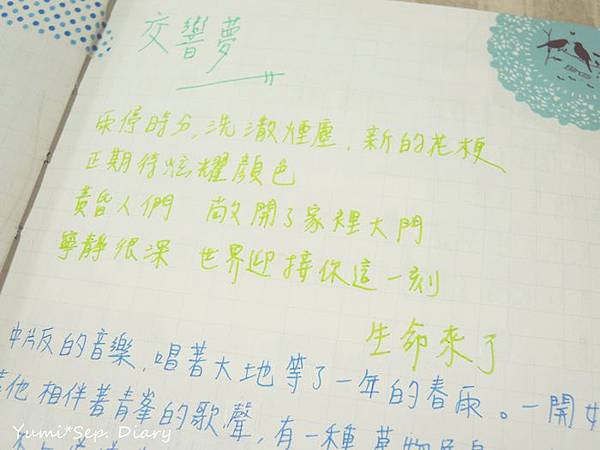 交響夢
雨停時分，洗澈煙塵，新的花梗
正期待炫耀顏色
黃昏人們 敞開了家裡大門
寧靜很深 世界迎接你這一刻
生命來了
的音樂，唱著大地等了一年的春雨。一開
他相伴著青峯的歌聲，有一種萬物
Yumi*Sep. Diary